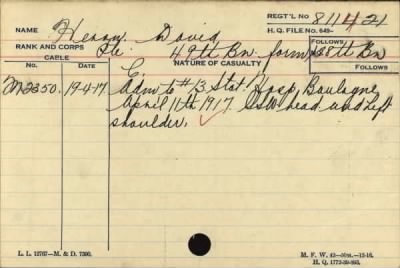 REGT'L NO 811421
NAME Henry. David
H. Q. FILE NO. 649-
RANK AND CORPS Pte. 49th Bn. form, 138th Bn
FOLLOWS
CABLE
No. DATE NATURE OF CASUALTY FOLLOWS
M2350. 19-4-17 Adm to #13 Stat. Hosp, Boulogne
April 11th 1917 GSW head and left
shoulder.
L. L. 12767—M. & D. 7390.
M. F. W. 42—50m.—12-16.
H. Q. 1772-39-893.